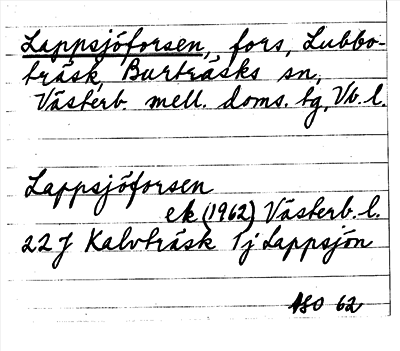 Lappsjöforsen, fors, Lubbo-
träsk, Burträsks sn,
Västerb. mell. doms. tg, Vb. l.
Lappsjöforsen
ek (1962) Västerb. l.
22 J Kalvträsk 1 j Lappsjön
ASO 62